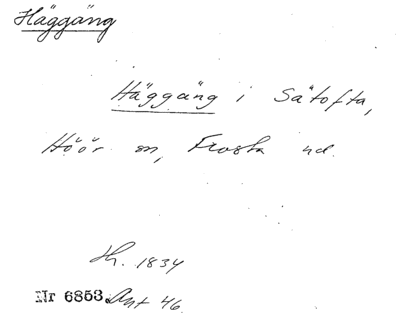 Häggäng
Häggäng i Såtofta,
Höör sn, Frosta hd.
Lh. 1834
Nr 6853 Ant 46.